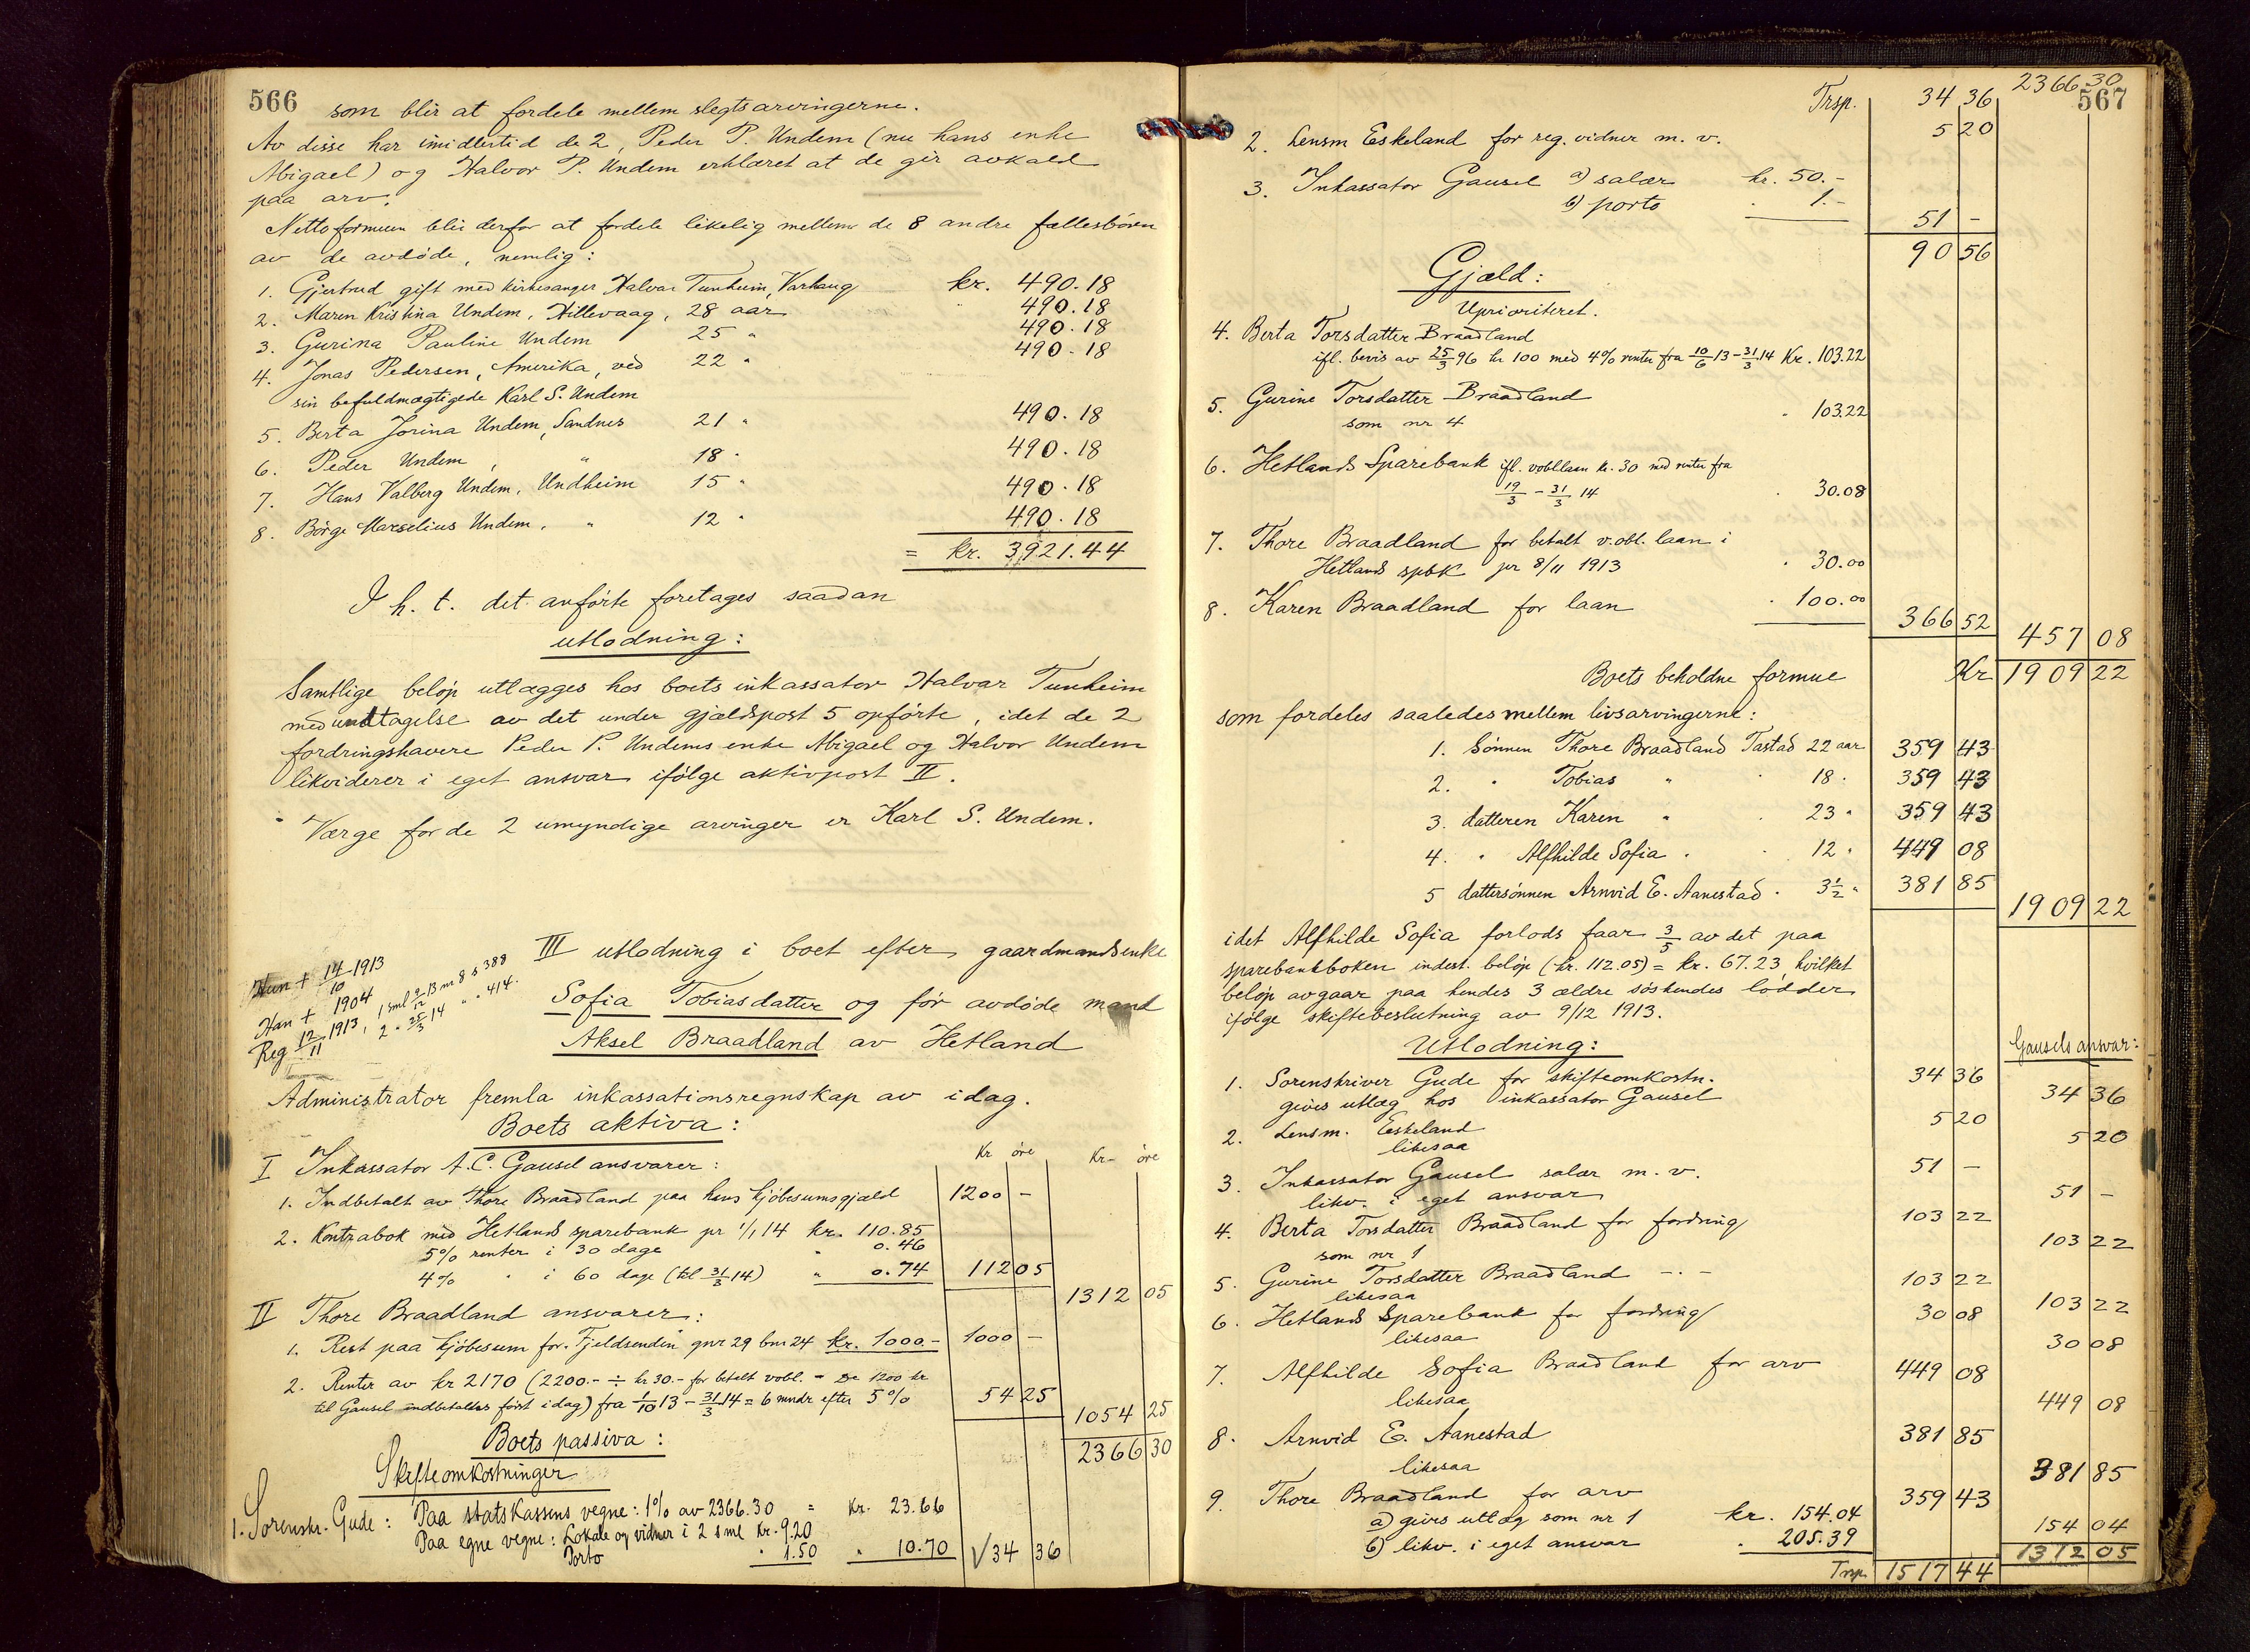 566
som blir at fordele mellem slegtsarvingerne.
Av disse har imidlertid de 2, Peder P. Undem (nu hans enke
Abigael) og Halvor P. Undem erklæret at de gir avkald
paa arv.
Nettoformuen blir derfor at fordele likelig mellem de 8 andre fællesbörn
av de avdøde, nemlig:
1. Gjertrud gift med kirkesanger Halvar Tunheim, Varhaug kr. 490.18
2. Maren Kristina Undem, Hillevaag, 28 aar 490.18
3. Gurina Pauline Undem 25 " 490.18
4. Jonas Pedersen, Amerika, ved 22 " 490.18
sin befuldmægtigede Karl S. Undem
5. Berta Jorina Undem, Sandnes 21 " 490.18
6. Peder Undem, " 18 " 490.18
7. Hans Valberg Undem, Undheim 15 " 490.18
8. Börge Marselius Undem, " 12 " 490.18
= kr. 3921.44
I h. t. det anførte foretages saadan
utlodning:
Samtlige beløp utlægges hos boets inkassator Halvar Tunheim
med undtagelse av det under gjældspost 5 opførte, idet de 2
fordringshavere Peder P. Undems enke Abigael og Halvor Undem
likviderer i eget ansvar ifølge aktivpost II.
Værge for de 2 umyndige arvinger er Karl S. Undem.
III utlodning i boet efter gaardmandsenke
Sofia Tobiasdatter og før avdøde mand
Aksel Braadland av Hetland
Hun + 14/10 1913
Han + 1904
Reg 12/11 1913, 1 sml 9/12 13 m 8 s 388
2 " 25/3 14 " " 414.
Administrator fremla inkassationsregnskap av idag.
Boets aktiva:
Kr öre Kr öre
I Inkassator A. C. Gausel ansvarer:
1. Indbetalt av Thore Braadland paa hans kjöbesumsgjæld 1200 –
2. Kontrabok med Hetlands sparebank pr 1/1 14 kr. 110.85
5% renter i 30 dage " 0.46
4% " i 60 dage (til 31/3 14) " 0.74 112 05
1312 05
II Thore Braadland ansvarer:
1. Rest paa kjöbesum for "Fjeldsenden" gnr 29 bnr 24 kr. 1000.– 1000 –
2. Renter av kr 2170 (2200.– ÷ kr 30.– for betalt vobl. = De 1200 kr
til Gausel indbetaltes först idag) fra 1/10 13 – 31/3 14 = 6 mndr efter 5% 54 25
1054 25
Boets passiva:
2366 30
Skifteomkostninger
1. Sorenskr. Gude: Paa statskassens vegne: 1% av 2366.30 = kr. 23.66
Paa egne vegne: Lokale og vidner i 2 sml kr. 9.20
Porto " 1.50 " 10.70 √34 36
567
Trsp. 34 36 2366 30
2. Lensm Eskeland for reg. vidner m. v. 5 20
3. Inkassator Gausel a) salær kr. 50.–
b) porto " 1.–
51 –
90 56
Gjæld:
Uprioriteret.
4. Berta Torsdatter Braadland
ifl. bevis av 25/3 96 kr 100 med 4% renter fra 10/6 13 – 31/3 14 Kr. 103.22
5. Gurine Torsdatter Braadland
som nr 4 " 103.22
6. Hetlands Sparebank ifl. vobllaan kr. 30 med renter fra
19/3 – 31/3 14 " 30.08
7. Thore Braadland for betalt v.obl. laan i
Hetlands spbk pr 8/11 1913 " 30.00
8. Karen Braadland for laan " 100.00
366 52
457 08
Boets beholdne formue Kr 1909 22
som fordeles saaledes mellem livsarvingerne:
1. Sönnen Thore Braadland Tastad 22 aar 359 43
2. " Tobias " " 18 " 359 43
3. datteren Karen " " 23 " 359 43
4. " Alfhilde Sofia " " 12 " 449 08
5 dattersönnen Arnvid E. Aanestad " 3 1/2 " 381 85
1909 22
idet Alfhilde Sofia forlods faar 3/5 av det paa
sparebankboken indest. beløp (kr. 112.05) = kr. 67.23, hvilket
beløp avgaar paa hendes 3 ældre søskendes lodder
ifølge skiftebeslutning av 9/12 1913.
Utlodning:
Gausels ansvar:
1. Sorenskriver Gude for skifteomkostn. 34 36
gives utlæg hos inkassator Gausel 34 36
2. Lensm. Eskeland 5 20
likesaa 5 20
3. Inkassator Gausel salær m. v. 51 –
likv. i eget ansvar 51 –
4. Berta Torsdatter Braadland for fordring 103 22
som nr 1 103 22
5. Gurine Torsdatter Braadland – " – 103 22
likesaa 103 22
6. Hetlands Sparebank for fordring 30 08
likesaa 30 08
7. Alfhilde Sofia Braadland for arv 449 08
likesaa 449 08
8. Arnvid E. Aanestad 381 85
likesaa 381 85
9. Thore Braadland for arv 359 43
a) gives utlæg som nr 1 kr. 154.04 154 04
b) likv. i eget ansvar " 205.39
1312 05
Trsp. 1517 44